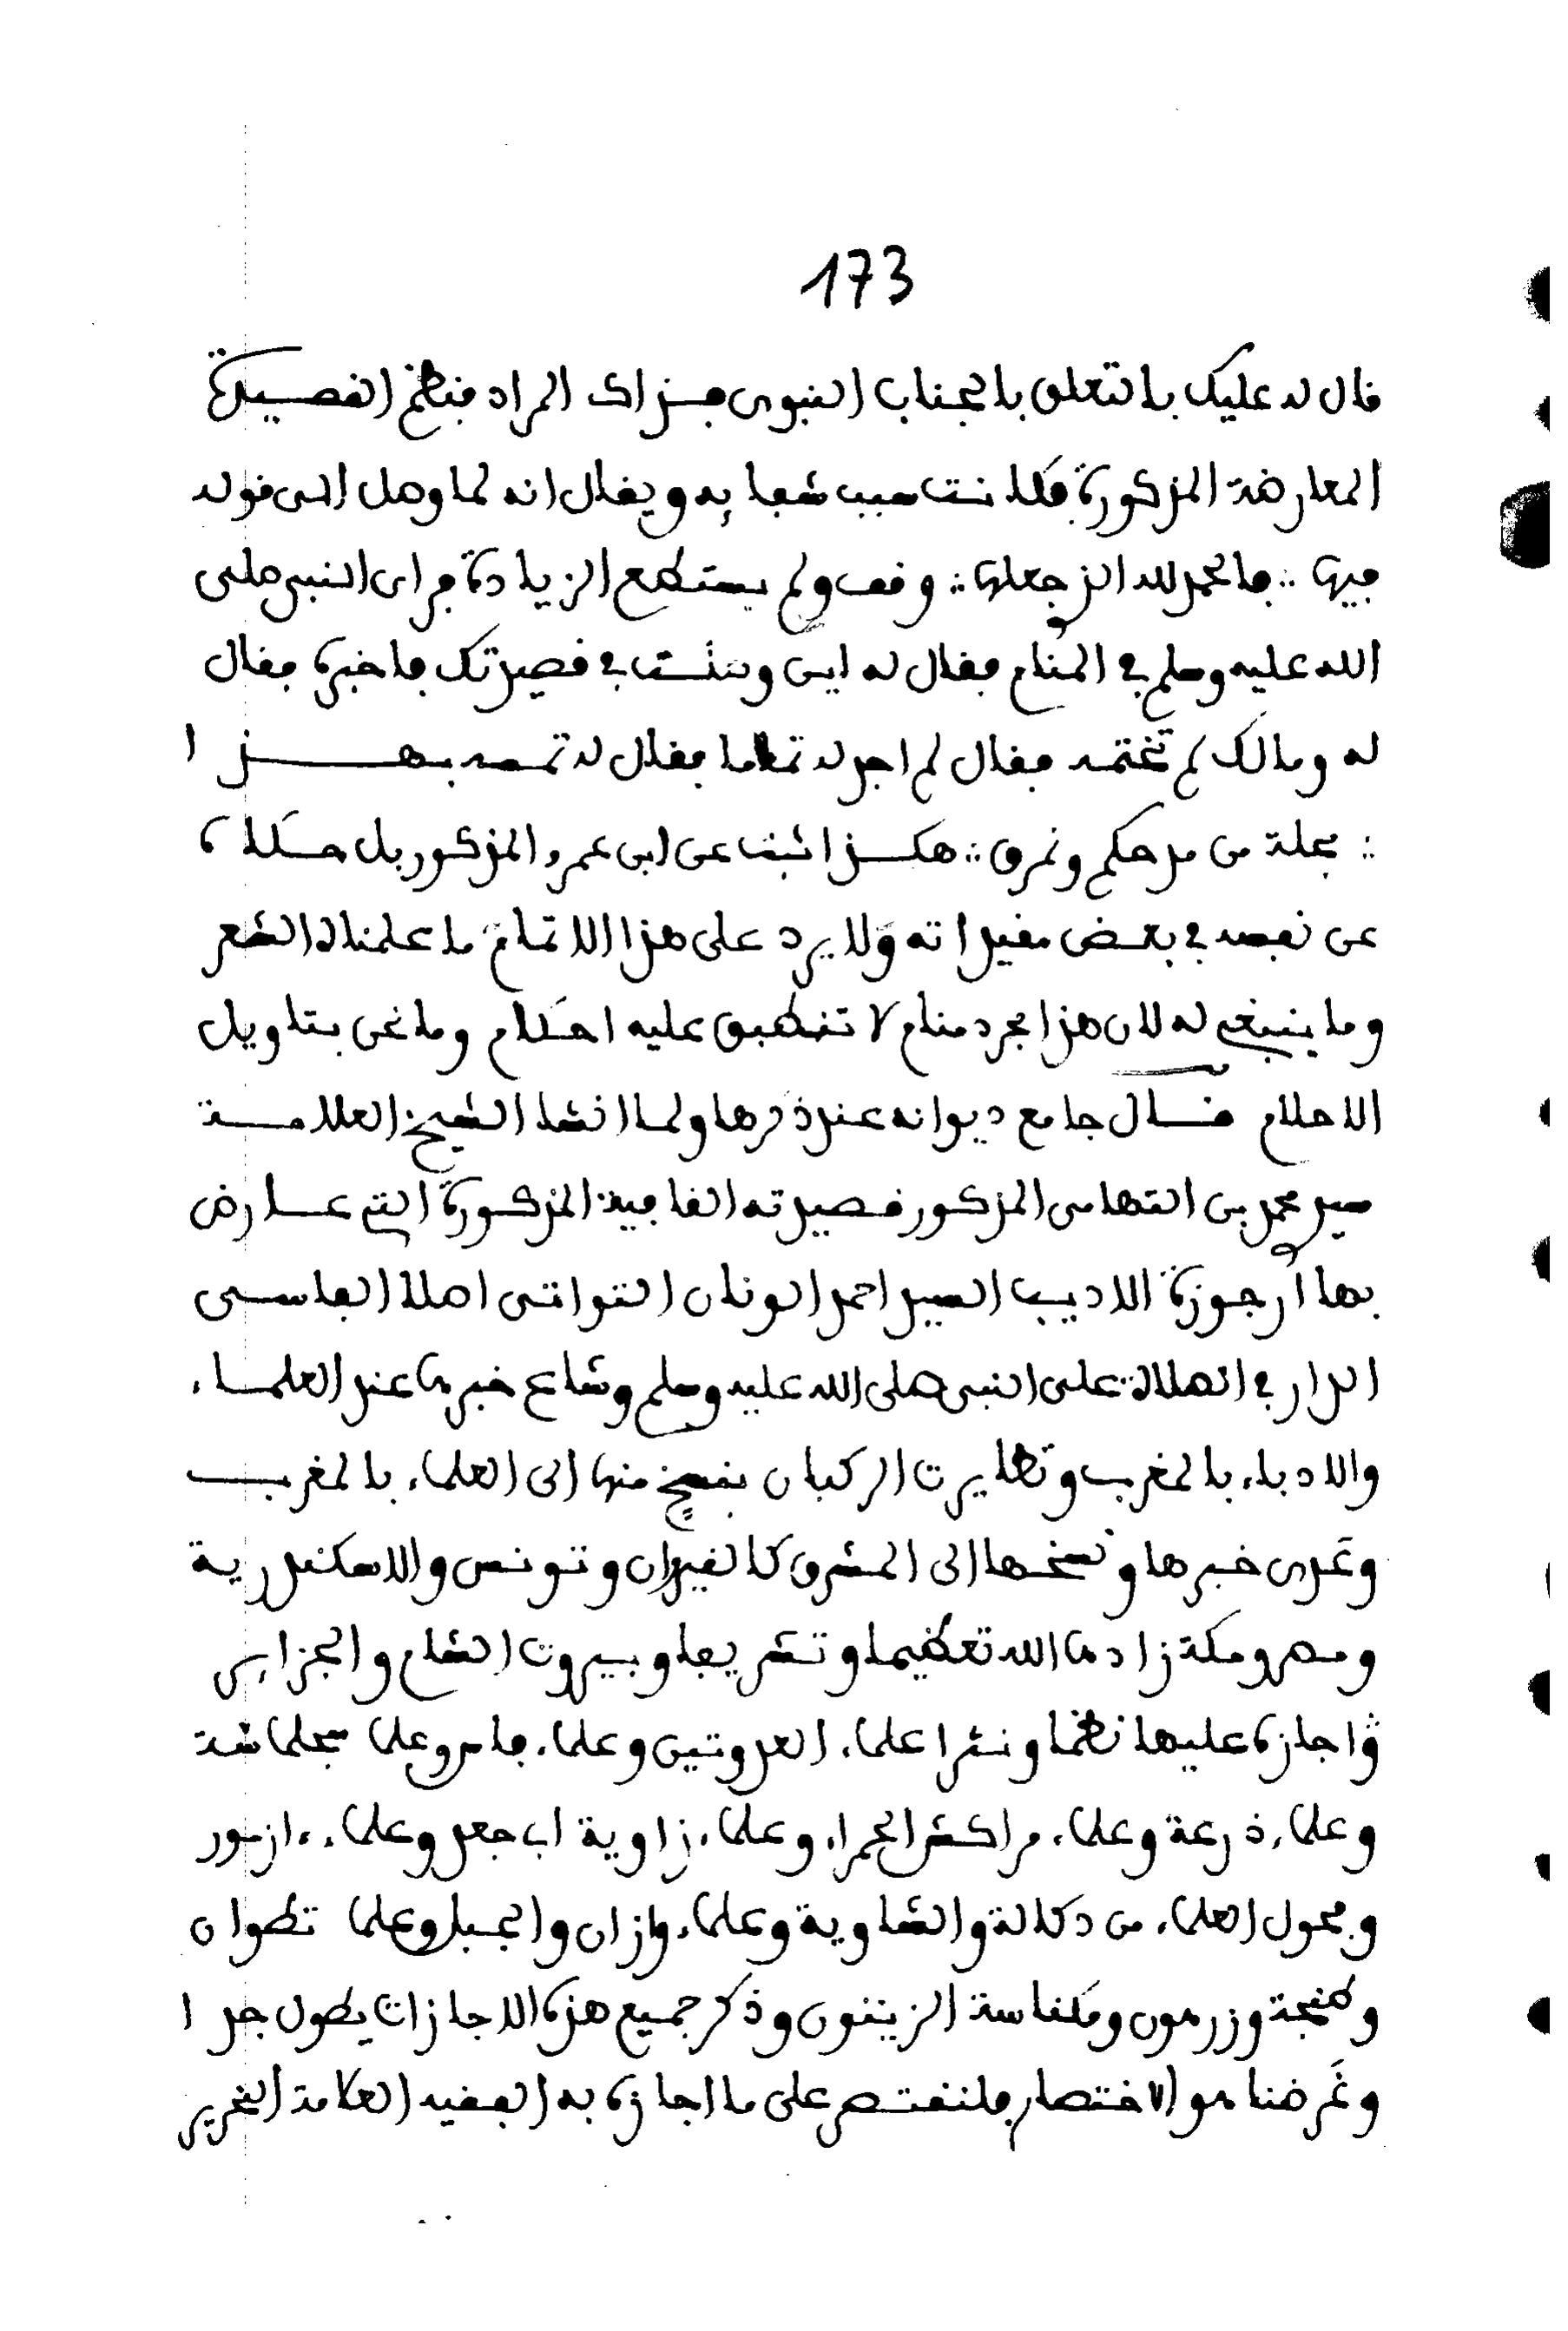 173
قال له عليك بالتعلق بالجناب النبوي فذاك المراد فنظم القصيدة
المعارضة المذكورة فكانت سبب شفايه ويقال انه لما وصل الى قوله
فيها ∴ فالحمد لله الذ جعلها ∴ وقف ولم يستطع الزيادة فراى النبي صلى
الله عليه وسلم في المنام فقال له اين وصلت في قصيدتك فاخبره فقال
له ومالك لم تختمه فقال لم اجد له تماما فقال له تممه بهذا
∴ بجلة من مدحكم ونمرق ∴ هكذا ثبت عن ابي عمرو المذكور بل حكاه
عن نفسه في بعض مقيداته ولا يرد على هذا الاتمام ما علمناه الشعر
وما ينبغي له لان هذا مجرد منام لا تنطبق عليه احكام وما نحن بتاويل
الاحلام قال جامع ديوانه عند ذكرها ولما انشا الشيخ العلامة
سيد محمد بن التهامي المذكور قصيدته القافية المذكورة التي عارض
بها أرجوزة الاديب السيد احمد الونان التواتي اصلا الفاسي
الدار في الصلاة على النبي صلى الله عليه وسلم وشاع خبرها عند العلماء
والادباء بالمغرب وتطايرت الركبان بنسخ منها الى العلماء بالمغرب
وتعدى خبرها ونسخها الى المشرق كالقيروان وتونس والاسكندرية
ومصر ومكة زادها الله تعظيما وتشريفا وبيروت الشام والجزاير
واجازه عليها نظما ونثرا علماء العدوتين وعلماء فاس وعلما سجلماسة
وعلماء ذرعة وعلماء مراكش الحمراء وعلماء زاوية اب جعد وعلماء ازمور
وفحول العلماء من دكالة والشاوية وعلماء وازان والجبل وعلما تطوان
وطنجة وزرهون ومكناسة الزيتون وذكر جميع هذه الاجازات يطول جدا
وغرضنا هو الاختصار فلنقتصر على ما اجازه به الفقيه العلامة النحرير